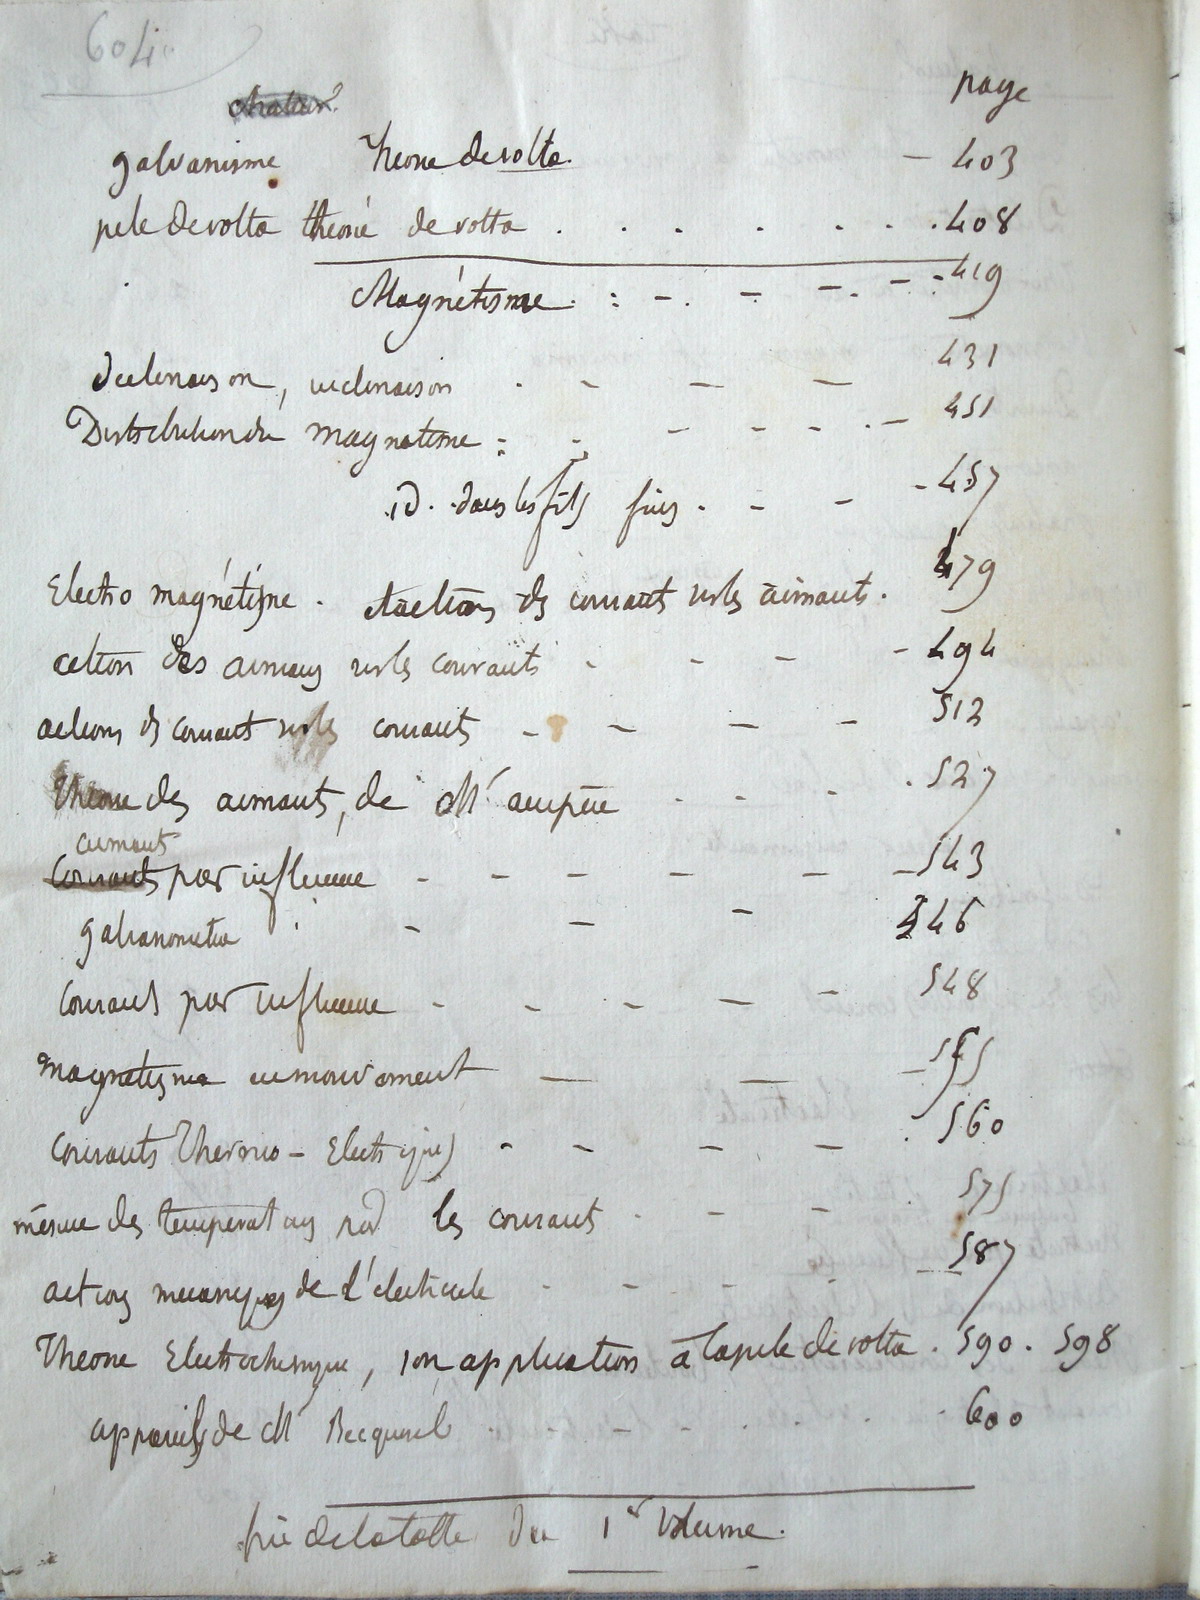 604
page
galvanisme Théorie de volta. - 403
pile de volta théorie de volta . . . . . . 408
Magnétisme . : - . - - . - - 419
declinaison, inclinaison . - - - 431
Distribution du magnetisme : . - - - . - 451
id. dans les fils fins . - - - 457
Electro magnétisme . actions des courants sur les aimants . 479
action des aimans sur les courants - - - - 494
actions des courants sur les courants - - - - 512
Théorie des aimants, de Mr ampère . - - . 527
aimant
Courants par influence - - - - - - 543
galvanometre . - - - 546
Courants par influence - - - - - 548
magnetisme en mouvement - - - 555
courants Thermo - Electriques - - - - . 560
mesure des temperatures par les courants . - - - 575
actions mecaniques de l'electricité - - - - - 587
Théorie Electrochimique, son application à la pile de volta . 590 . 598
appareils de Mr Becquerel . . - - . . . - 600
fin de la table du 1er Volume.